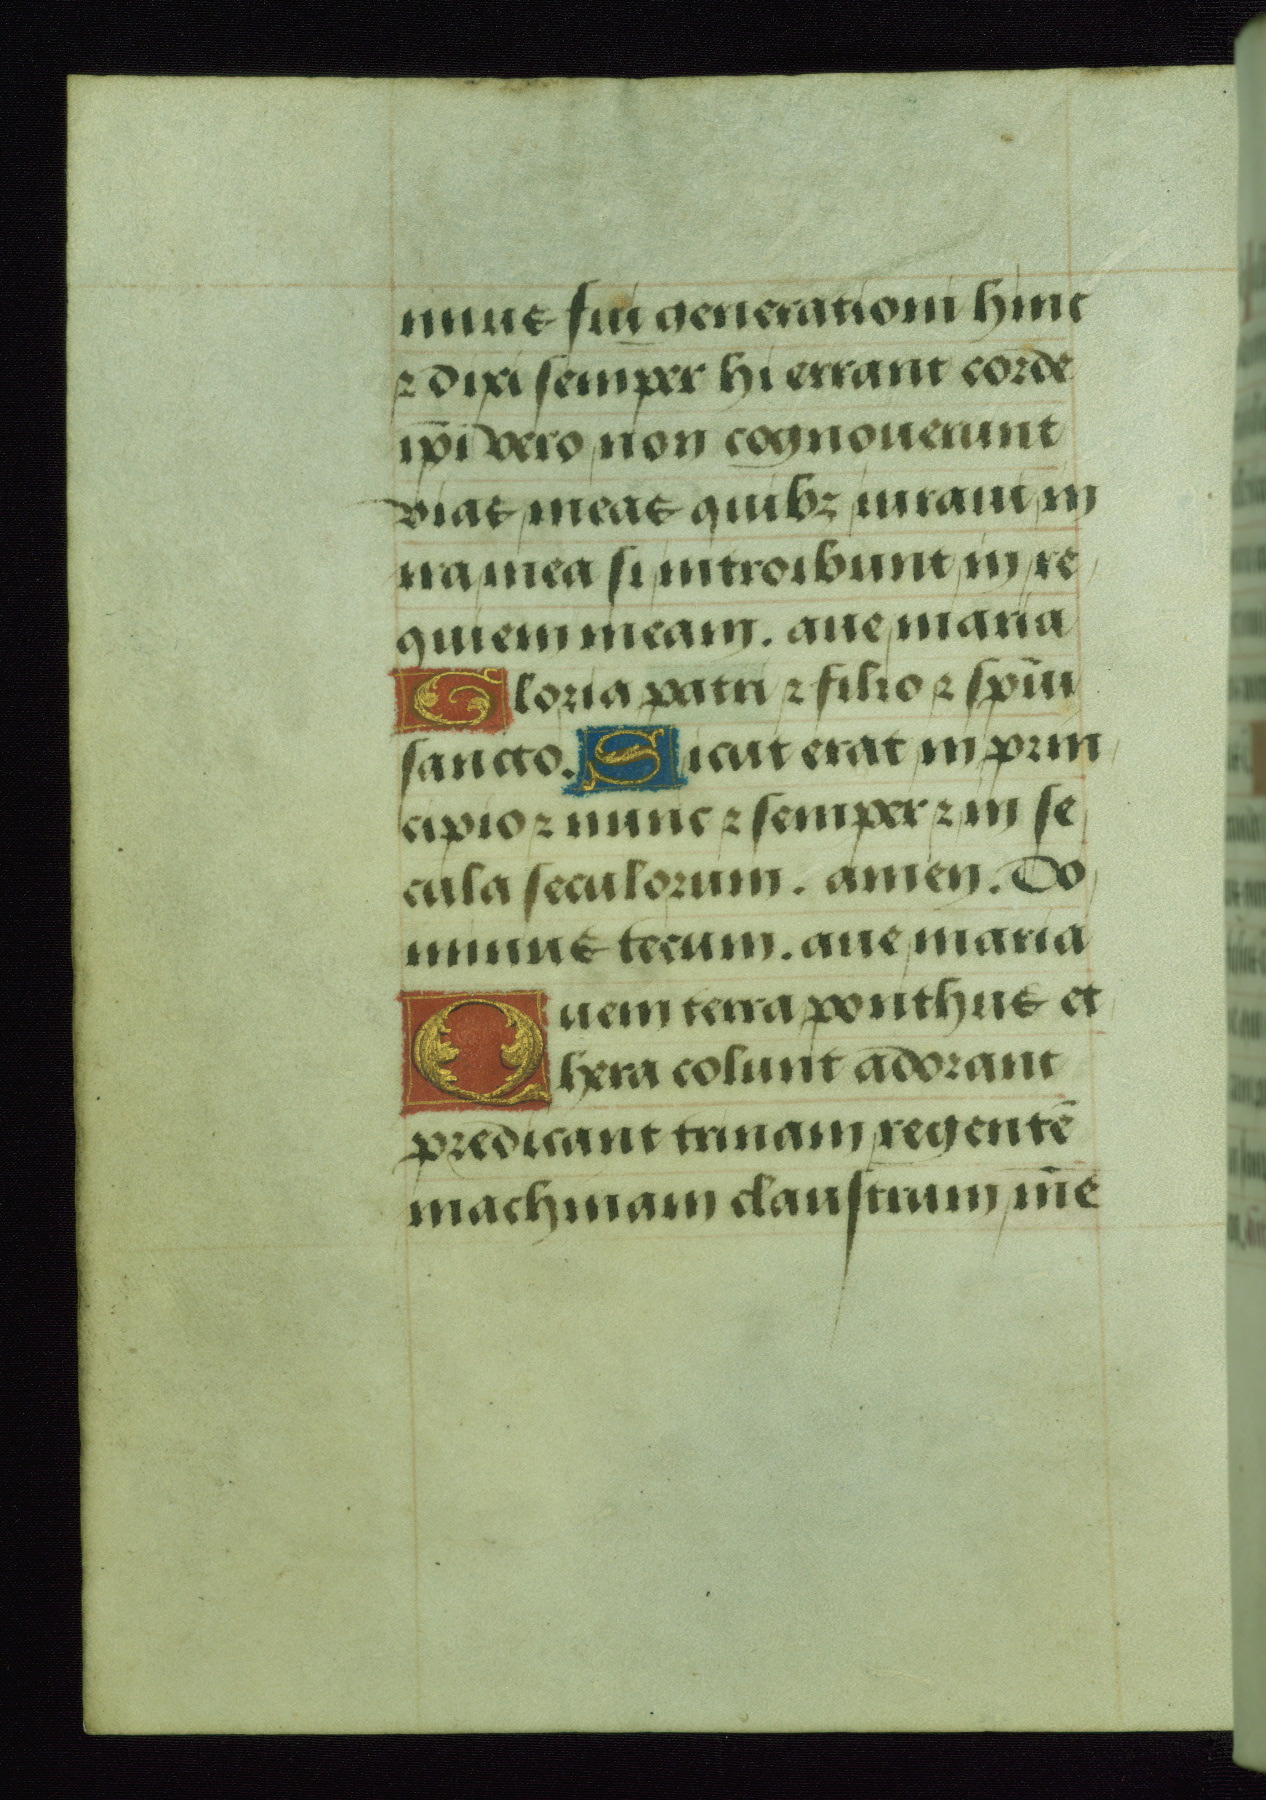 mus fui generationi huic
⁊ dixi semper hi errant corde
ip̄i vero non cognouerunt
vias meas quibꝫ iuraui in
ira mea si introibunt in re
quiem meam. aue maria
Gloria patri ⁊ filio ⁊ sp̄ui
sancto. Sicut erat in prin
cipio ⁊ nunc ⁊ semper ⁊ in se
cula seculorum. amen. Do
minus tecum. aue maria
Quem terra ponthus et
hera colunt adorant
predicant trinam regentē
machinam claustrum m̄e